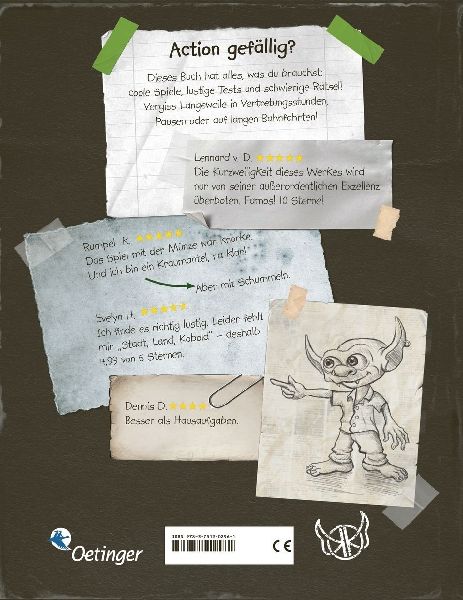 Action gefällig?
Dieses Buch hat alles, was du brauchst:
coole Spiele, lustige Tests und schwierige Rätsel!
Vergiss Langeweile in Vertretungsstunden,
Pausen oder auf langen Bahnfahrten!
Lennard v. D. ★★★★★
Die Kurzweiligkeit dieses Werkes wird
nur von seiner außerordentlichen Exzellenz
überboten. Famos! 10 Sterne!
Rumpel K. ★★★★★
Das Spiel mit der Münze war knorke.
Und ich bin ein Kraumantel, na klar!
Aber mit Schummeln.
Evelyn H. ★★★★★
Ich finde es richtig lustig. Leider fehlt
mir „Stadt, Land, Kobold“ – deshalb
4,99 von 5 Sternen.
Dennis D. ★★★★
Besser als Hausaufgaben.
Oetinger
ISBN
CE